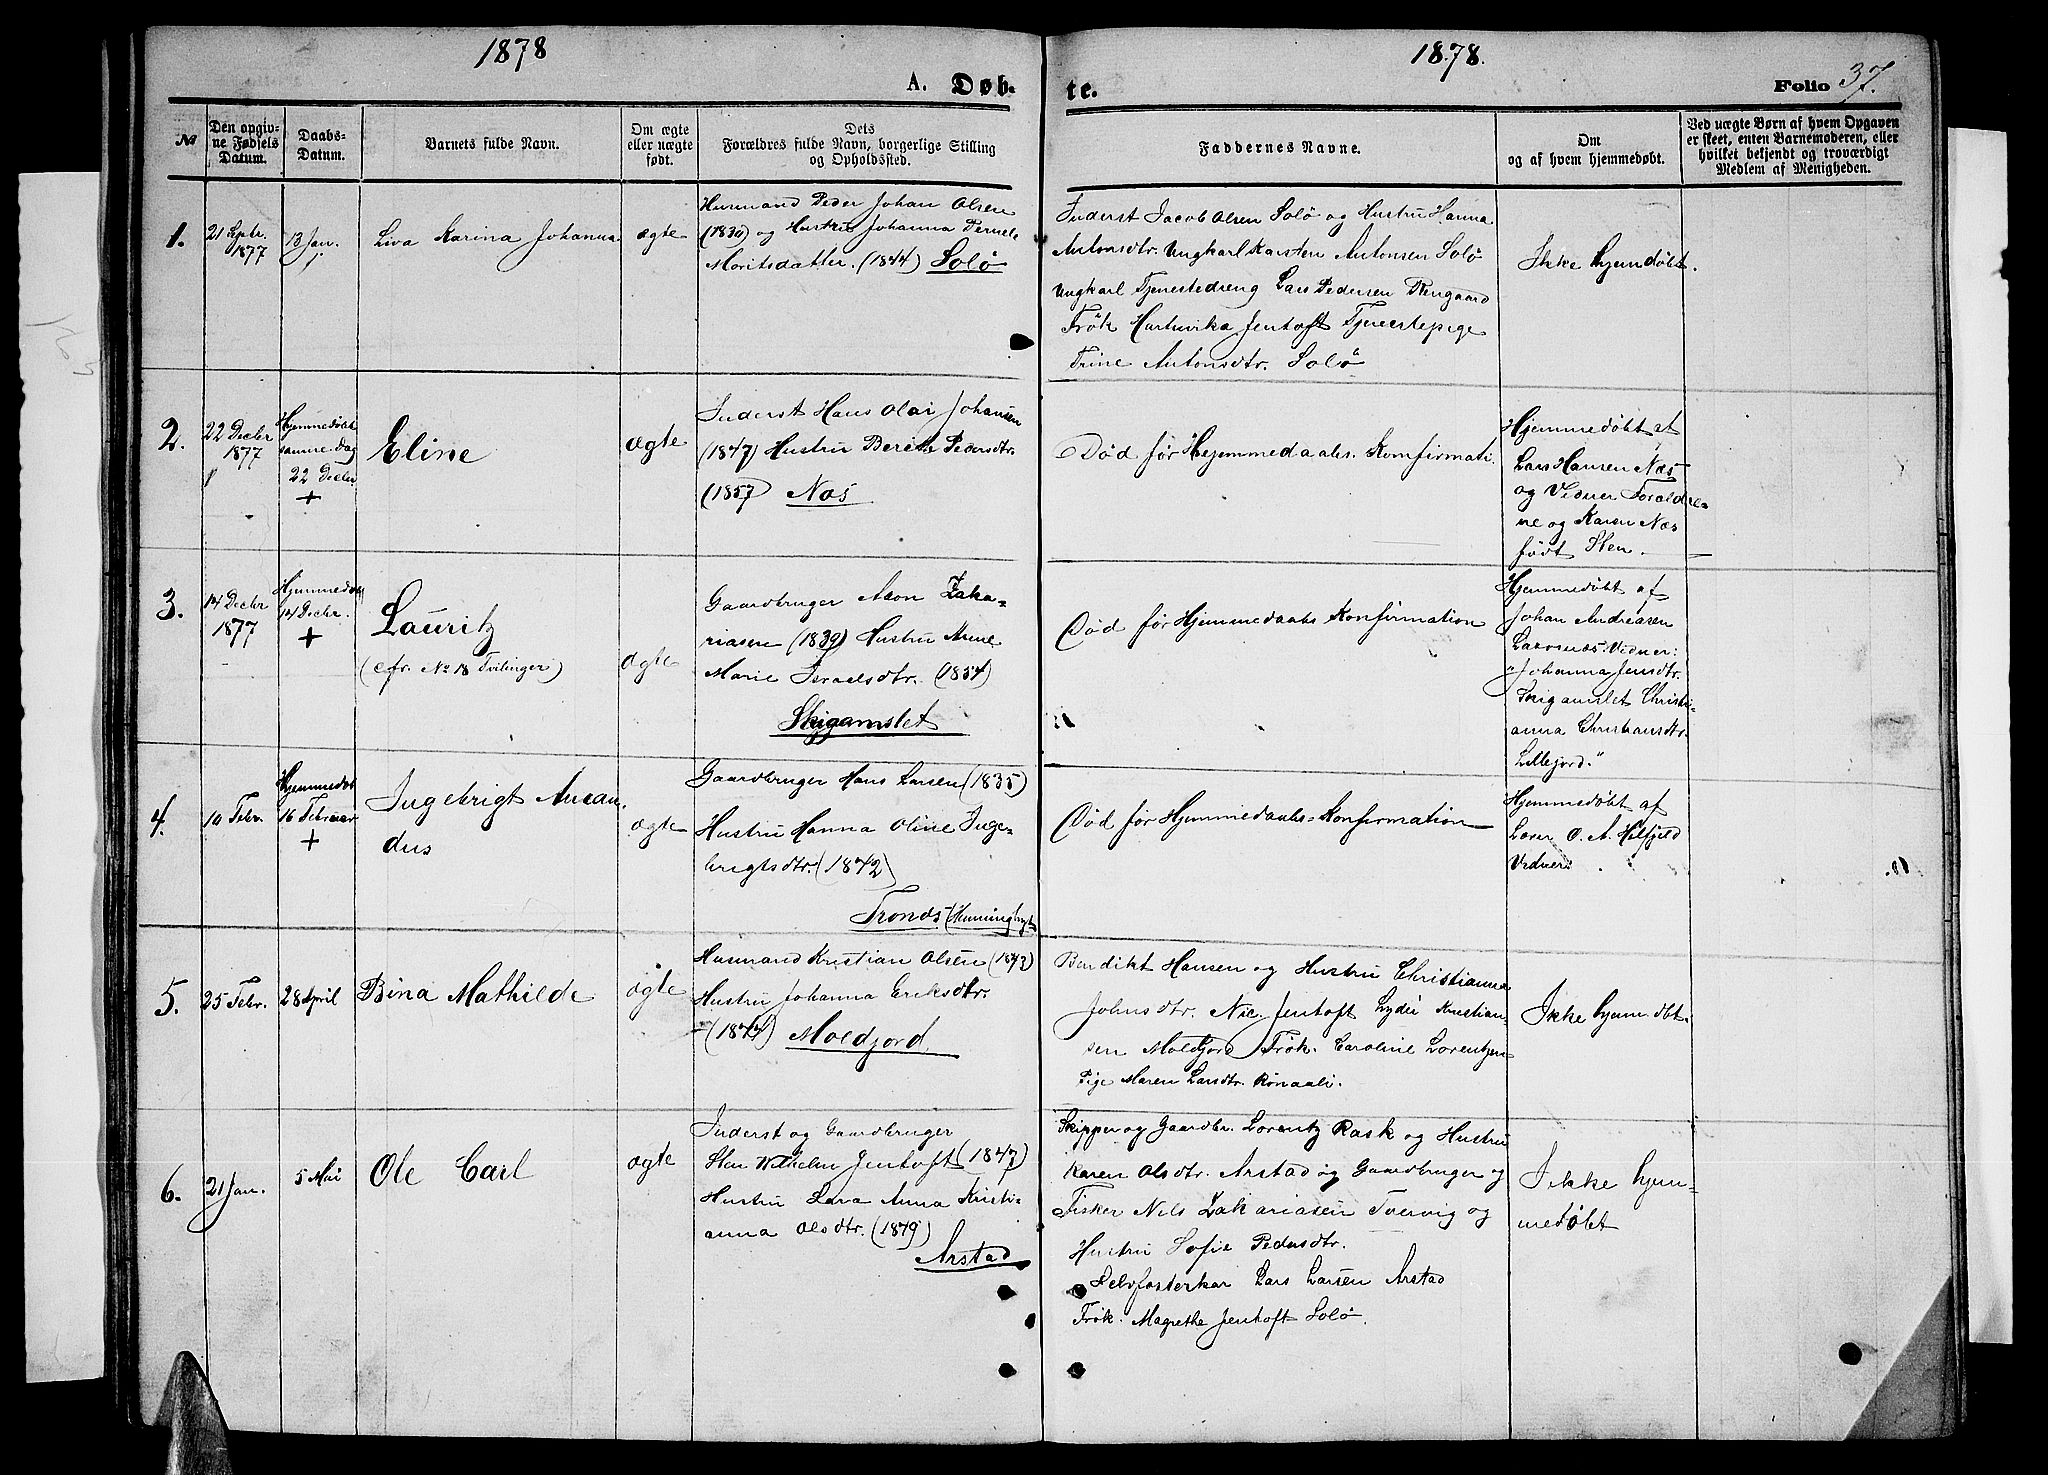 1878
1878.
A. Døb-
te.
Folio 37.
No
Den opgiv-
ne Fødsels
Datum.
Daabs-
Datum.
Barnets fulde Navn.
Om ægte
eller uægte
født.
Dets
Forældres fulde Navn, borgerlige Stilling
og Opholdssted.
Faddernes Navne.
Om
og af hvem hjemmedøbt.
Ved uægte Børn af hvem Opgaven
er skeet, enten Barnemoderen, eller
hvilket bekjendt og troværdigt
Medlem af Menigheden.
1.
21 Sptr.
1877
13 Jan.
Liva Karina Johanna
ægte
Husmand Peder Johan Olsen
(1830) og Hustru Johanna Pernele
Moritsdatter. (1844) Solø
Inderst Jacob Olsen Solø og Hustru Hanna
Antonsdtr. Ungkarl Karsten Antonsen Solø
Ungkarl Tjenestedreng Lars Pedersen
Frøk Hartvika Jentoft Tjenestepige
Trine Antonsdtr. Solø
Ikke hjemdøbt.
2.
22 Decbr
1877
Hjemmedøbt
samme Dag
22 Decbr
+
Eline
ægte
Inderst Hans Olai Johansen
(1847) Hustru Berete Pedersdtr.
(1857) Næs
Død før Hjemmedaabs. Konfirmati.
Hjemmedøbt af
Lars Hansen Næs
og Vidner Forældre=
ne og Karen Næs
født Sten.
3.
14 Decbr
1877
Hjemmedøbt
14 Decbr.
+
Lauritz
(cfr. No 18 Tvilinger)
ægte
Gaardbruger Aron Zaka-
riasen (1839) Hustru Anne
Marie Israelsdtr. (1854)
Skjgamslet
Død før Hjemmedaabs Konfirmation
Hjemmedøbt af
Johan Andreasen
Vidner:
"Johanna Jensdtr.
Skigamslet Christi-
anna Christiansdtr.
Lillejord."
4.
10 Febr.
Hjemmedøbt
16 Februar
+
Ingebrigt Aman
dus
ægte
Gaardbruger Hans Larsen (1835)
Hustru Hanna Oline Inge-
brigtsdtr. (1842)
Tronds (Henningbygt
Død før Hjemmedaabs=Konfirmation
Hjemmedøbt af
Lærer O. A. Hilfjeld
Vidner:
5.
25 Febr.
28 April
Bina Mathilde
ægte
Husmand Kristian Olsen (1843)
Hustru Johanna Eriksdtr.
(1844) Moldjord
Bendikt Hansen og Hustru Christianna
Johnsdtr. Nic. Jentoft Lyder Kristian-
sen Moldjord Frøk. Caroline Lorentzen
Pige Maren Larsdtr. Rønaali.
Ikke hjemdøbt.
6.
21 Jan.
5 Mai
Ole Carl
ægte
Inderst og Gaardbruger
Sten Wilhelm Jentoft (1847)
Hustru Lava Anna Kristi-
anna Olsdtr. (1849)
Arstad
Skipper og Gaardbr. Lorentz Rask og Hustru
Karen Olsdtr. Arstad og Gaardbruger og
Fisker Nils Zakariasen Tvervig og
Hustru Sofie Pedersdtr.
Selvfosterkar Lars Larsen Arstad
Frøk. Magrethe Jentoft Solø.
Ikke hjem-
medøbt